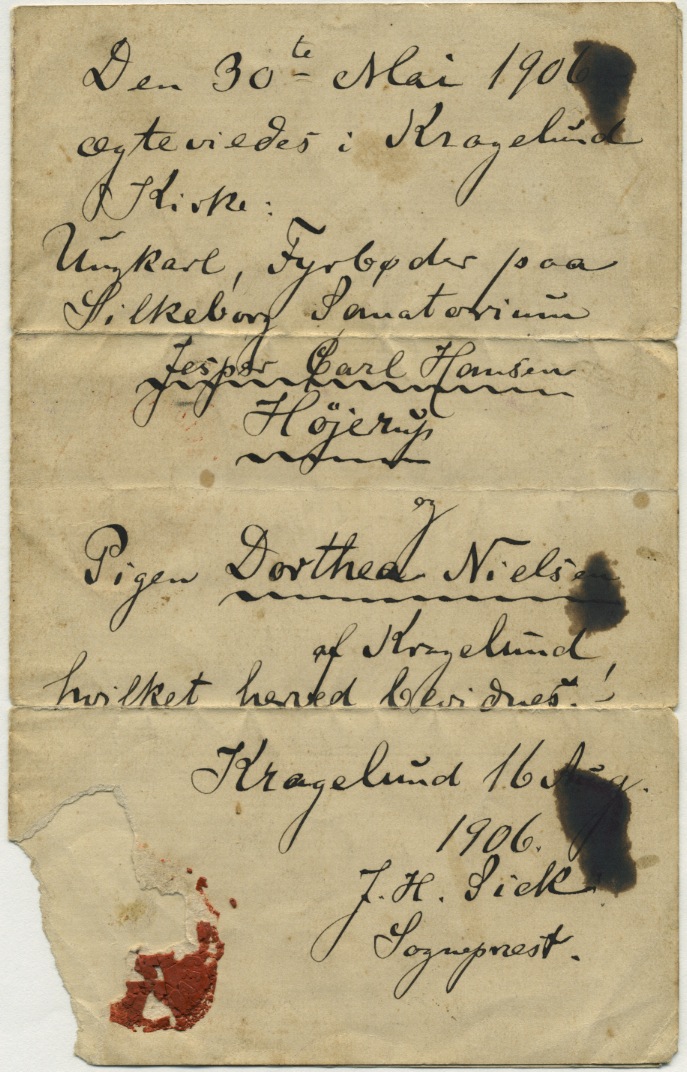 Den 30te Mai 1906
ægteviedes i Kragelund
Kirke:
Ungkarl, Fyrbøder paa
Silkeborg Sanatorium
Jesper Carl Hansen
Höjerup
og
Pigen Dorthea Nielsen
af Kragelund,
hvilket herved bevidnes.
Kragelund 16 Aug.
1906.
J. H. Sick
Sognepræst.